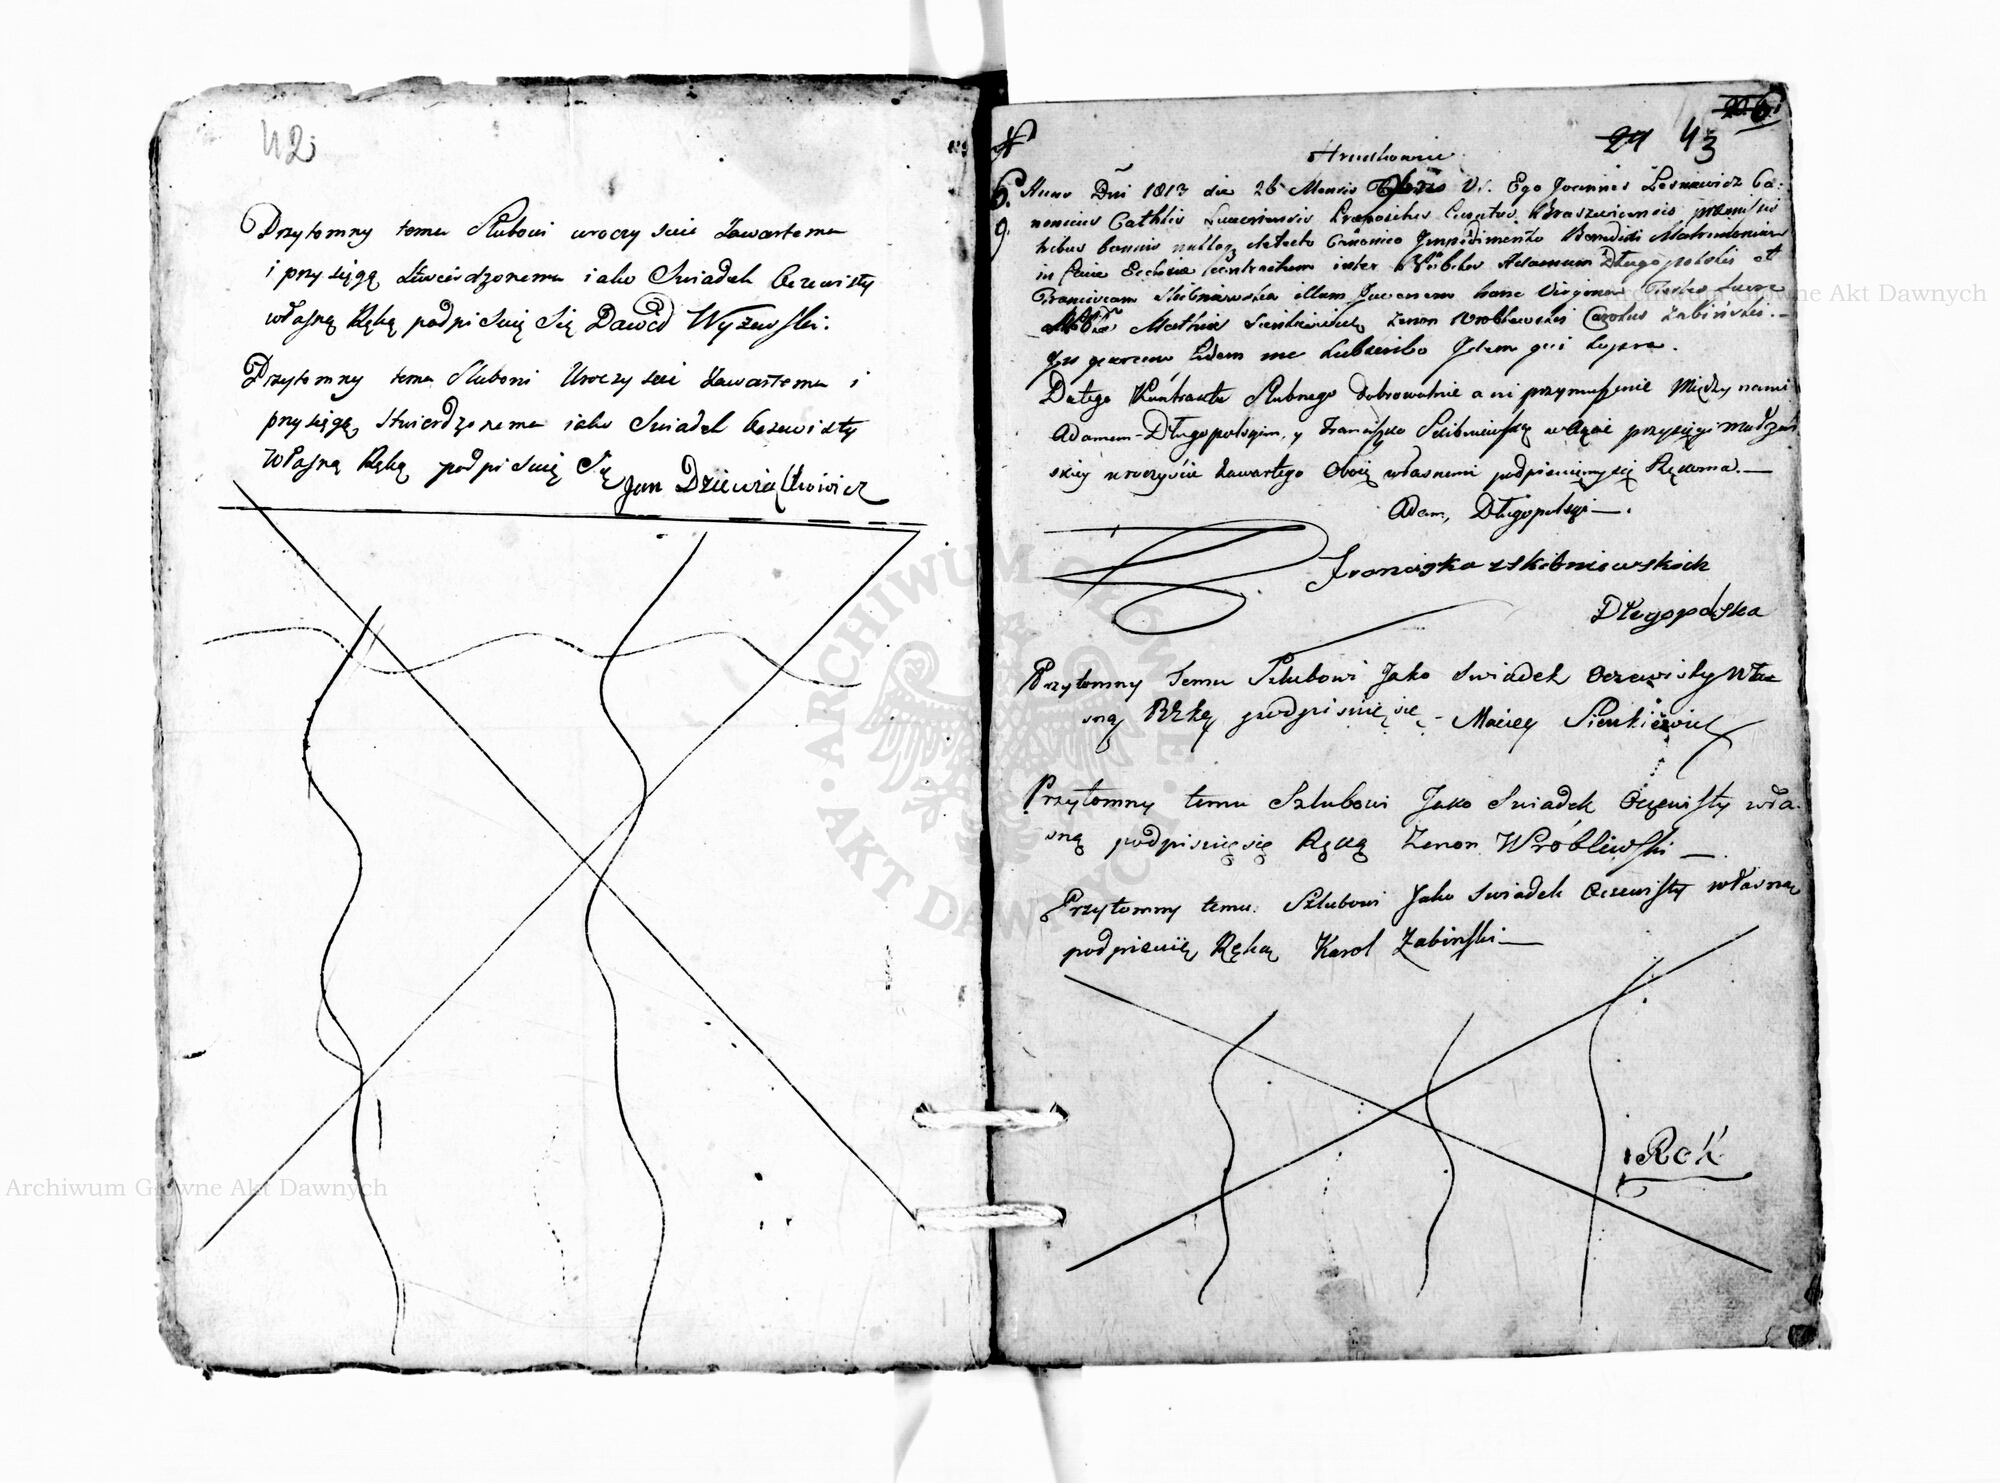 42
Przytomny temu Slubowi uroczyscie zawartemu
i przysięgą stwierdzonemu iako Swiadek Oczewisty
własną Ręką podpisuię się Dawid Wyżewski.
Przytomny temu Slubowi Uroczyscie zawartemu i
przysięgą stwierdzonemu iako Swiadek Oczewisty
Własną Ręką podpisuię Się Jan Dziewiątkowicz
24 43
Hruszkowie
6. Anno Dni 1813 die 26 Mensis V. S. Ego Joannes Lesniewicz Ca:
9 nonicus Cathlis Luceoriensis Praepositus Curatus Braszevicensis praemissis
tribus bannis nulloq detecto Canonico Impedimento Benedixi Matrimonium
in facie Ecclesiae contractum inter Adamum Długopolski et
Franciscam Skibniewska illum Juvenem hanc Virginem Testes fuere
Mathias Sienkiewicz Zenon Wroblewski Carolus Zabiński.
In quorum fidem me Subscribo Idem qui supra.
Datego Kóntraktu Slubnego dobrowolnie a ni przymuszenie Między nami
Adamem Długopolsgim, y Franciszko Skibniewską w Czasie przysięgi małżeń
skiey uroczyście zawartego Oboie własnemi podpisuiemy się Rękoma.
Adam, Długopolsgi.
Franciszka z Skibniewskich
Długopolska
Przytomny Temu Szlubowi Jako Swiadek Oczewisty Wła
sną Ręką podpisuię się - Maciey Sienkiewicz
Przytomny temu Szlubowi Jako Swiadek Oczewisty wła
sną podpisuię się Ręką Zenon Wróblewski
Przytomny temu Szlubowi Jako Swiadek Oczewisty własną
podpisuię Ręką Karol Zabinski
Rok
ARCHIWUM GŁÓWNE AKT DAWNYCH
Archiwum Główne Akt Dawnych
Archiwum Główne Akt Dawnych